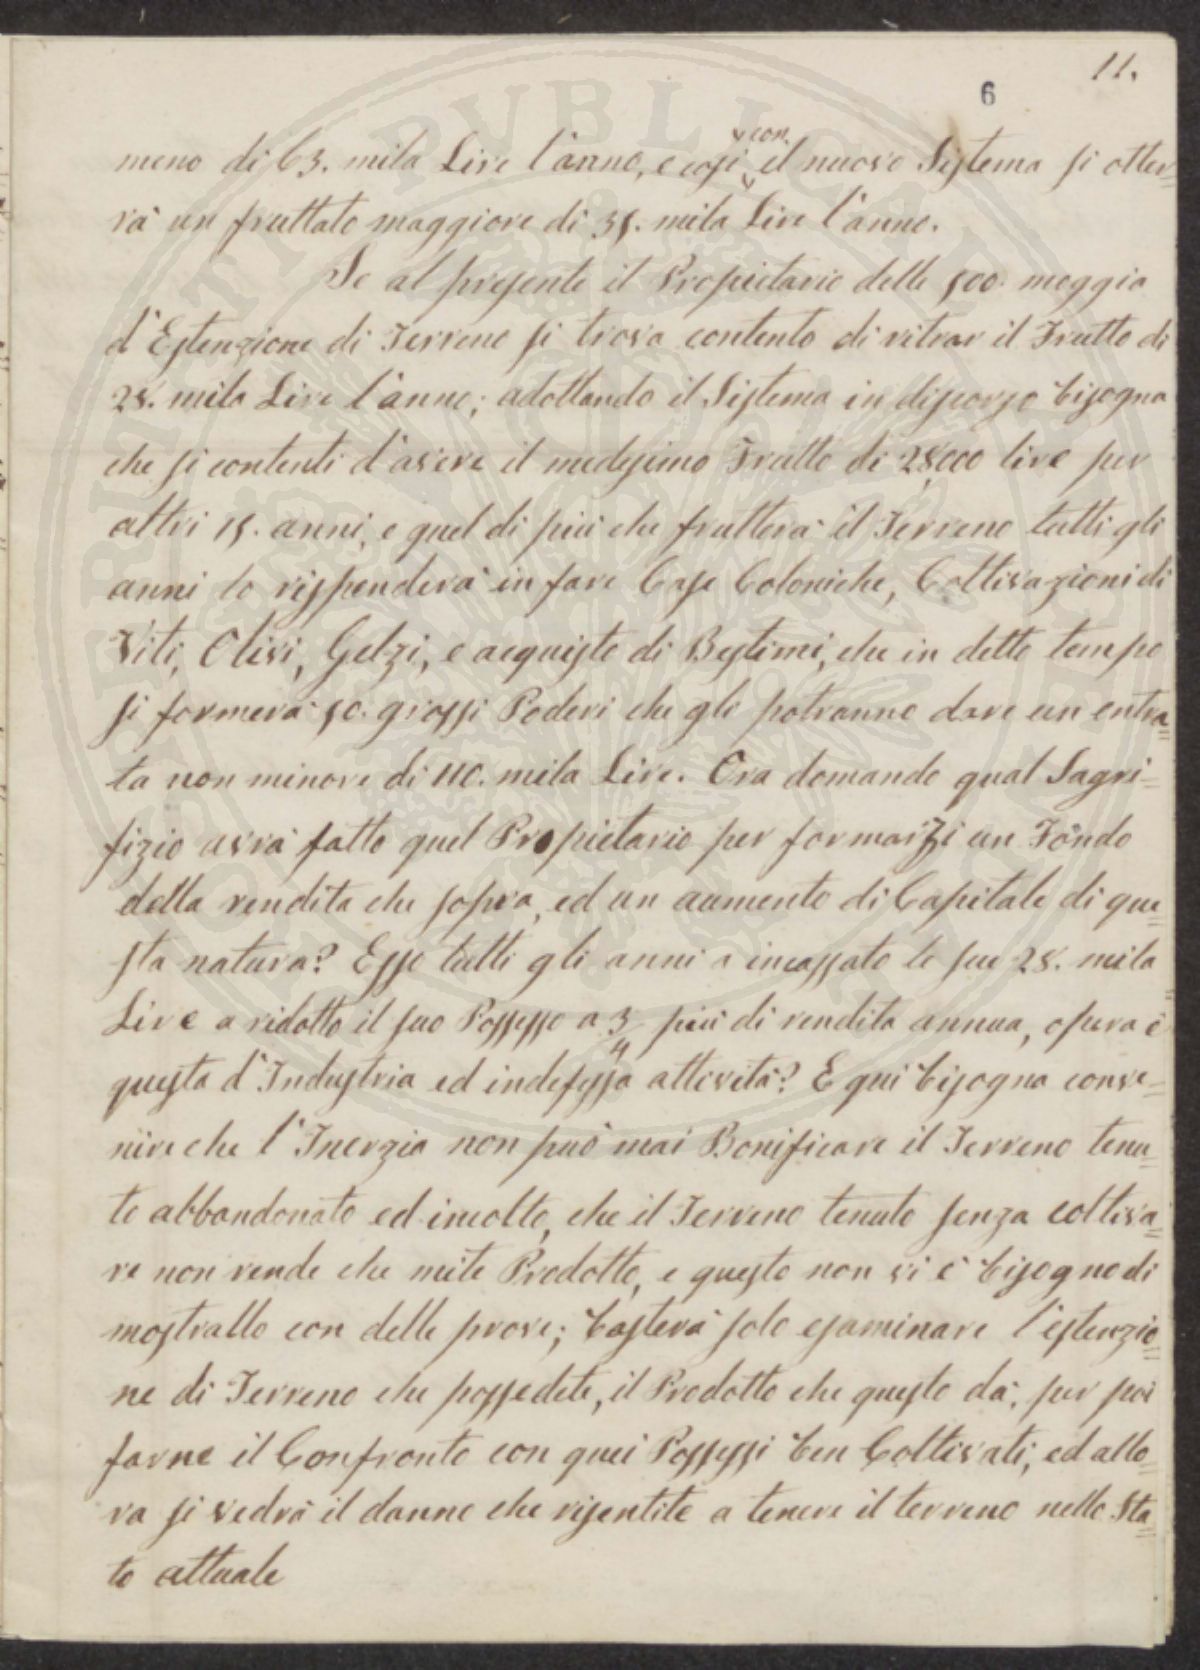 11.
6
meno di 63. mila Lire l'anno, e così con il nuovo Sistema si otter=
rà un fruttato maggiore di 35. mila Lire l'anno.
Se al presente il Propietario delle 500. moggia
d'Estenzione di Terreno si trova contento di ritrar il Frutto di
28. mila Lire l'anno; adottando il Sistema in disporzo bisogna
che si contenti d'avere il medesimo Frutto di 28,000 lire per
altri 15. anni, e quel di più che frutterà il Terreno tutti gli
anni lo rispenderà in fare Case Coloniche, Coltivazioni di
Viti, Olivi, Gelzi, e acquisto di Bestimi, che in detto tempo
si formerà 50. grossi Poderi che gli potranno dare un entra=
ta non minore di 110. mila Lire. Ora domando qual Sagri=
fizio avrà fatto quel Propietario per formarzi un Fondo
della rendita che sopra, ed un aumento di Capitale di que=
sta natura? Esso tutti gli anni a incassato le sue 28. mila
Lire a ridotto il suo Possesso a 3/4 più di rendita annua, opera è
questa d'Industria ed indefessa attività? E qui bisogna conve=
nire che l'Inerzia non può mai Bonificare il Terreno tenu=
to abbandonato ed incolto, che il Terreno tenuto senza coltiva=
re non rende che mite Prodotto, e questo non vi è bisogno di
mostrallo con delle prove; basterà solo esaminare l'estenzio=
ne di Terreno che possedete, il Prodotto che questo dà, per poi
farne il Confronto con quei Possessi ben Coltivati, ed allo=
ra si vedrà il danno che risentite a tenere il terreno nello Sta=
to attuale